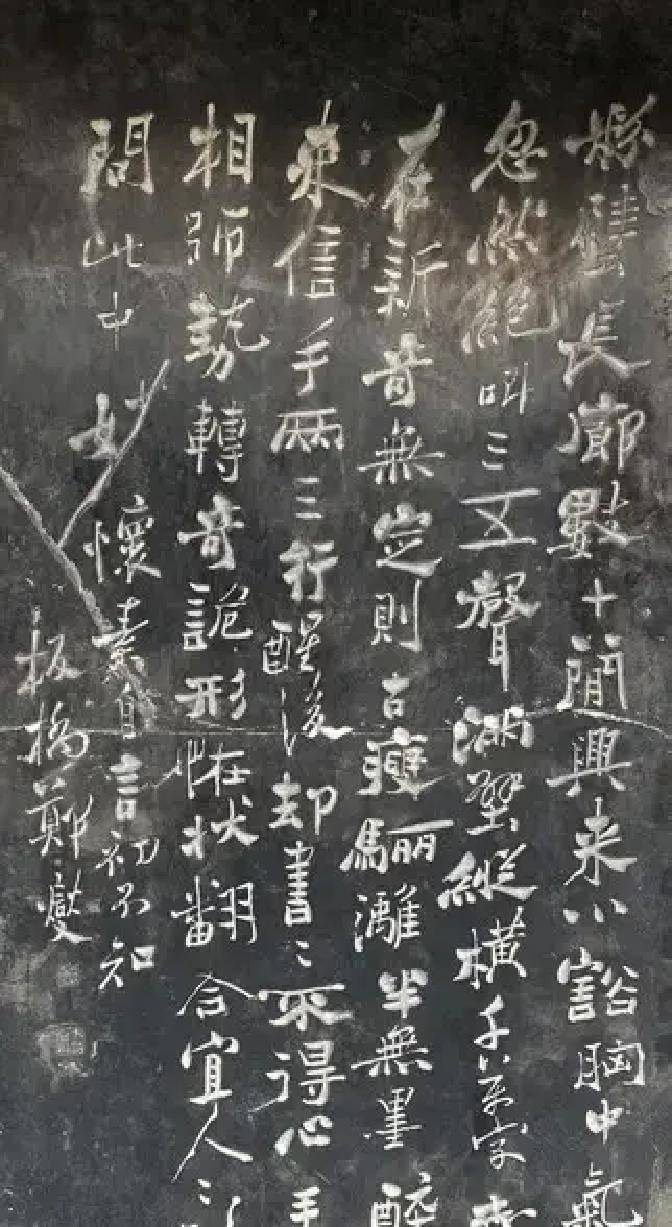 壁長廊數十間興来小豁胸中氣
忽然絕叫三五聲滿壁縱橫千萬字
在新奇無定則古瘦驪灕半無墨醉
来信手兩三行醒後却書〻不得心手
相師勢轉奇詭形恠狀翻合宜人〻
問此中妙懷素自言初不知
板橋鄭燮